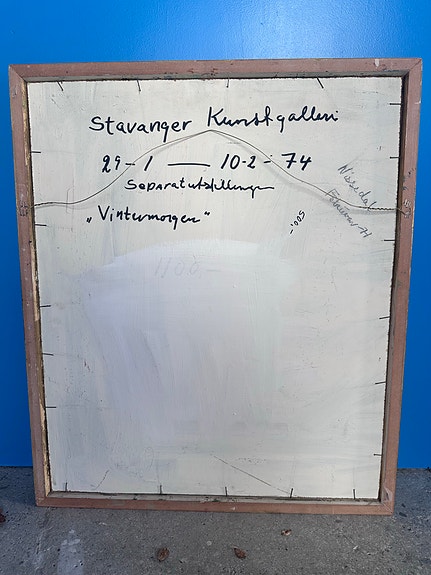 Stavanger Kunstgalleri
29-1 — 10-2-74
Separatutstillingen
„Vintermorgen"
Nissedal
500,-
1100-